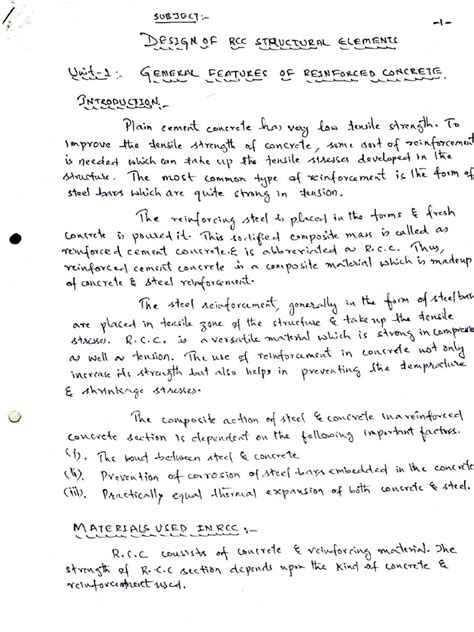 SUBJECT:-
-1-
DESIGN OF RCC STRUCTURAL ELEMENTS
Unit-1:- GENERAL FEATURES OF REINFORCED CONCRETE.
INTRODUCTION:-
Plain cement concrete has very low tensile strength. To
improve the tensile strength of concrete, some sort of reinforcement
is needed which can take up the tensile stresses developed in the
structure. The most common type of reinforcement is the form of
steel bars which are quite strong in tension.
The reinforcing steel is placed in the forms & fresh
concrete is poured it. This solified composite mass is called as
reinforced cement concrete & is abbreviated as R.C.C. Thus,
reinforced cement concrete is a composite material which is madeup
of concrete & steel reinforcement.
The steel reinforcement, generally in the form of steel bars
are placed in tensile zone of the structure & take up the tensile
stresses. R.C.C. is a versatile material which is strong in compression
as well as tension. The use of reinforcement in concrete not only
increase its strength but also helps in preventing the temprature
& shrinkage stresses.
The composite action of steel & concrete in a reinforced
concrete section is dependent on the following important factors.
(i). The bond between steel & concrete
(ii). Prevention of corrosion of steel bars embedded in the concrete
(iii). Practically equal thermal expansion of both concrete & steel.
MATERIALS USED IN RCC :-
R.C.C consists of concrete & reinforcing material. The
strength of R.C.C section depends upon the kind of concrete &
reinforcement used.